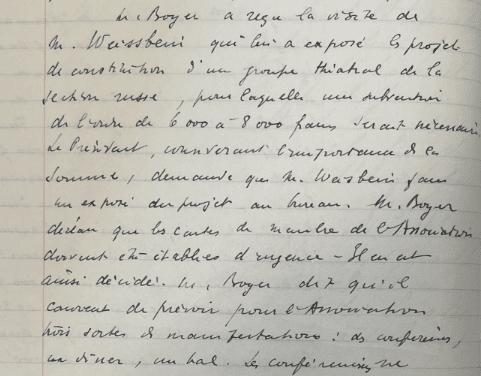 M. Boyer a reçu la visite de
M. Weissbein qui lui a exposé le projet
de constitution d'un groupe théatral de la
section russe, pour laquelle une subvention
de l'ordre de 6000 à 8000 francs serait nécessaire
Le Président, considérant l'importance de la
somme, demande que M. Weisbein fasse
un exposé du projet au bureau. M. Boyer
déclare que les cartes de membre de l'Association
doivent être établies d'urgence - Il en est
ainsi décidé. M. Boyer dit qu'il
convient de prévoir pour l'Association
trois sortes de manifestations : des conférences,
un dîner, un bal. Les conférences ne